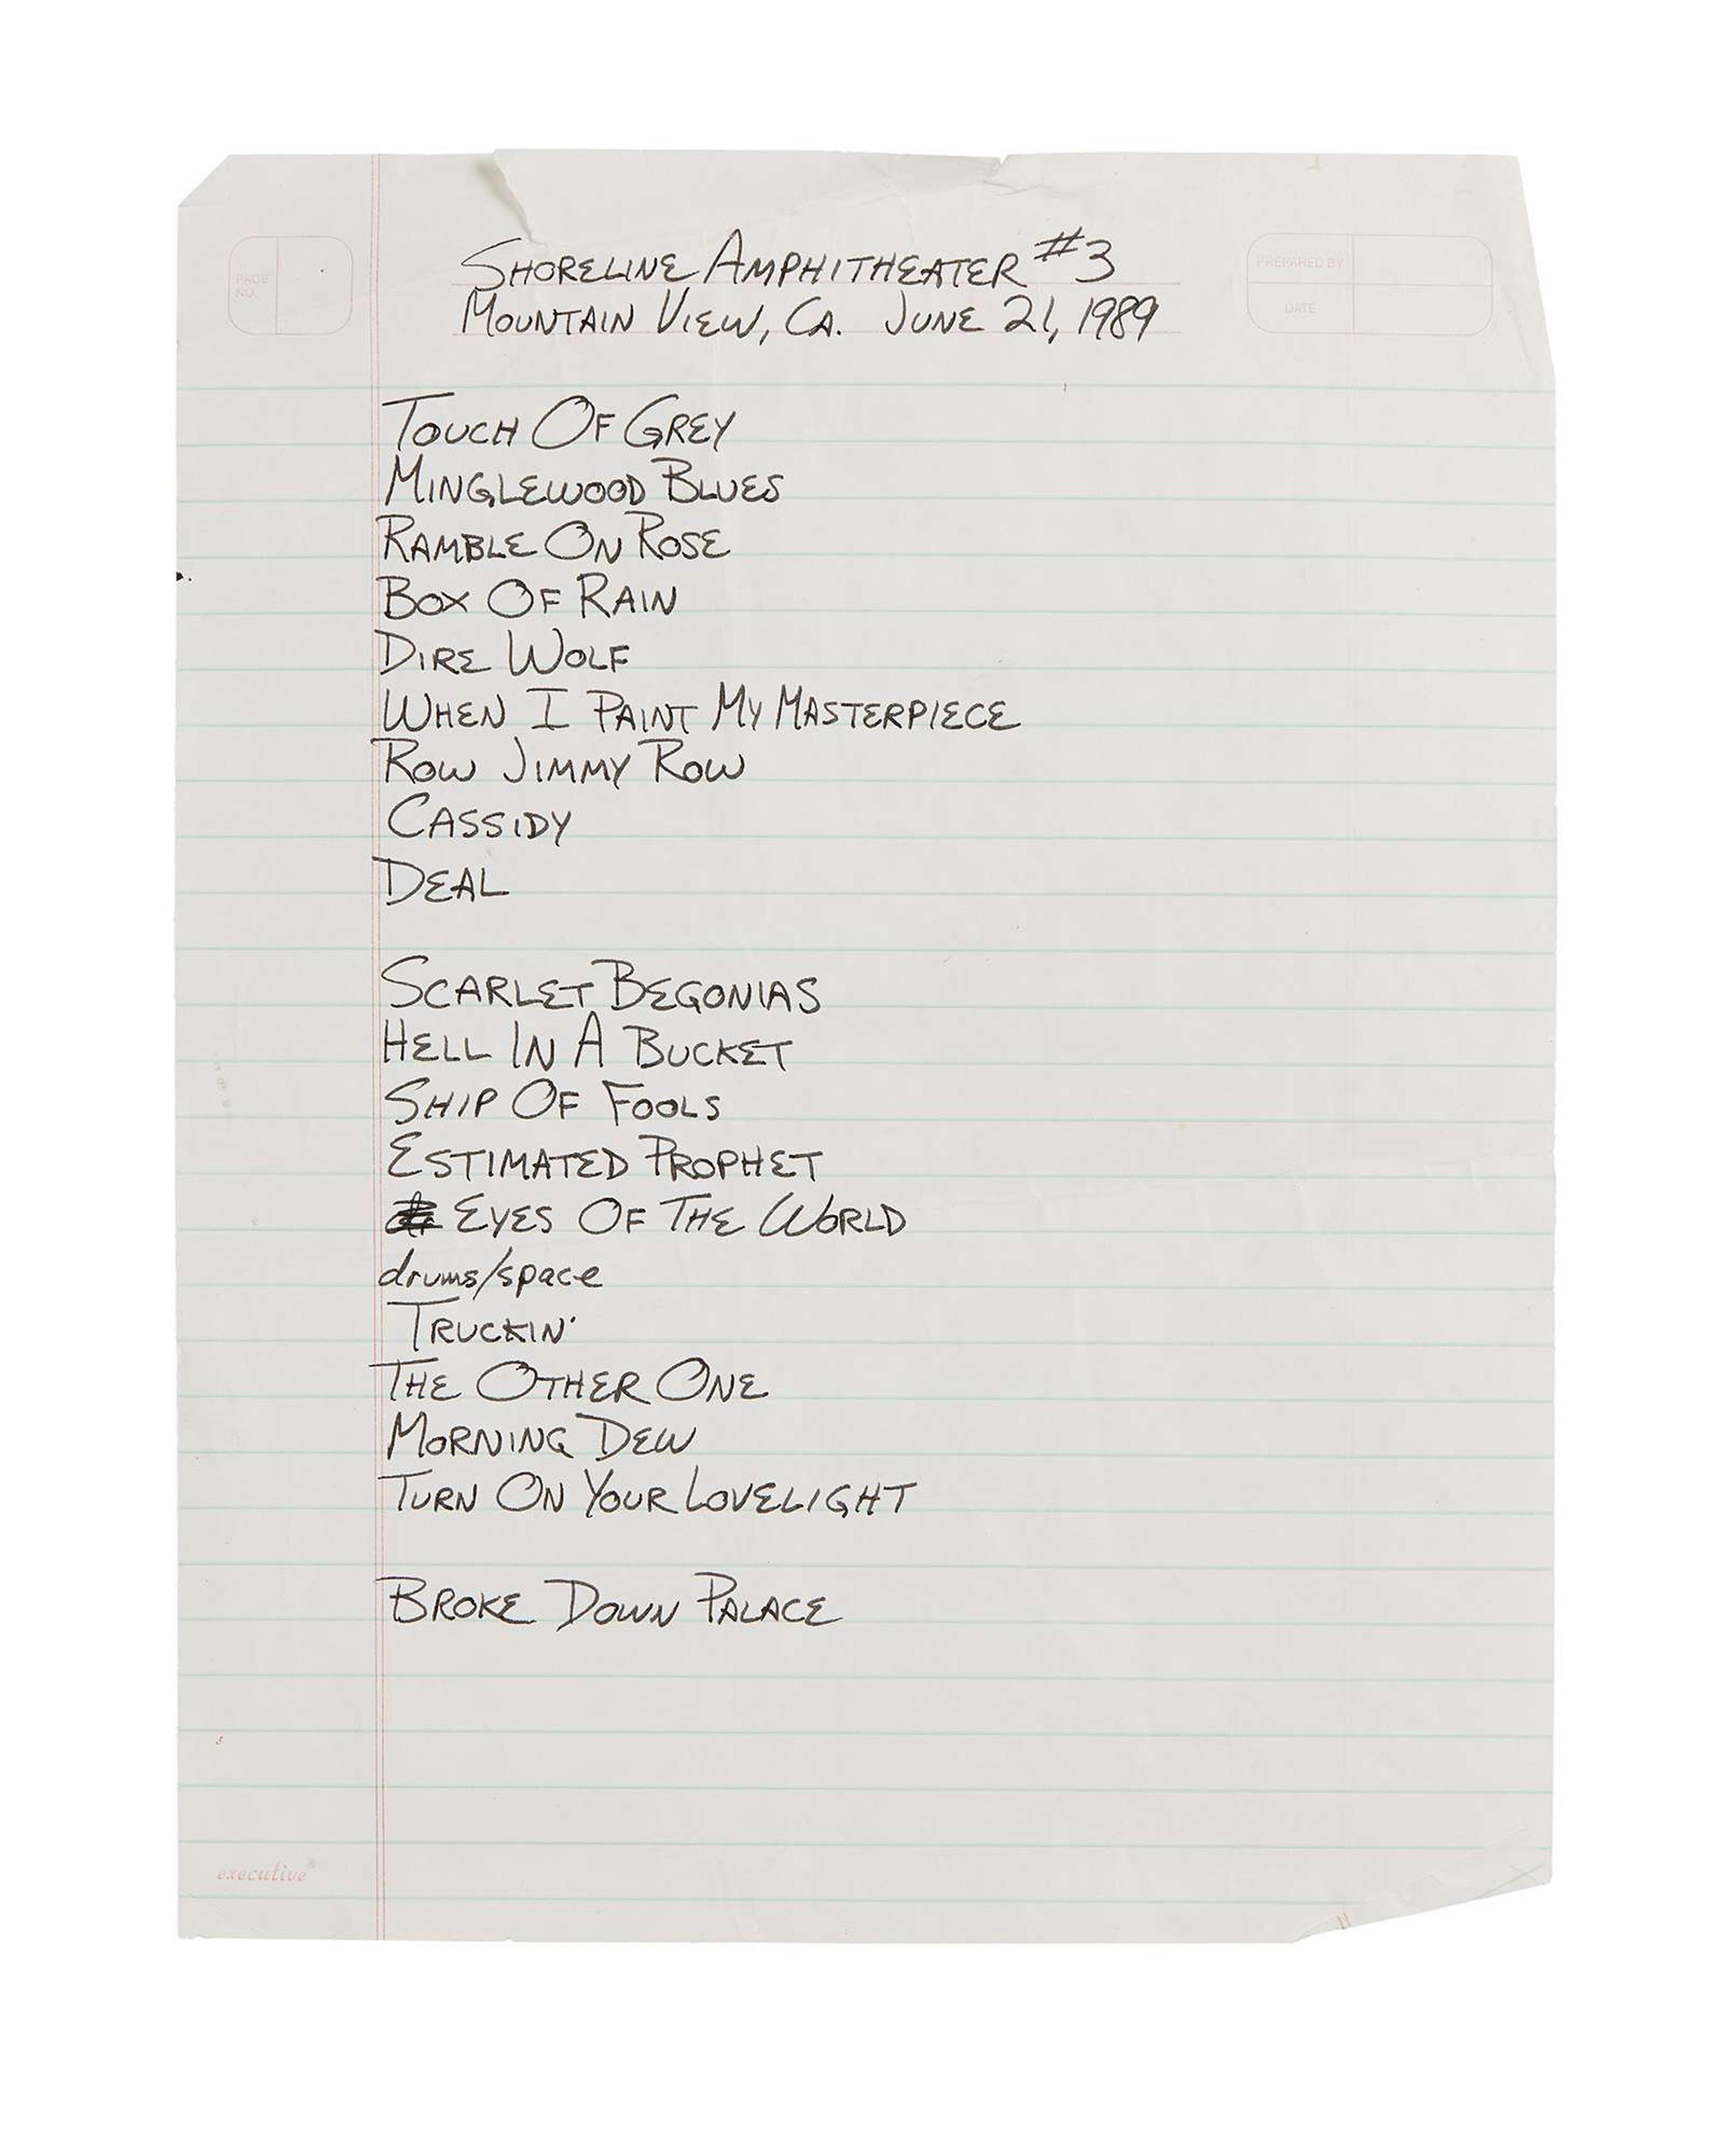 PAGE
NO.
SHORELINE AMPHITHEATER #3
MOUNTAIN VIEW, CA. JUNE 21, 1989
PREPARED BY
DATE
TOUCH OF GREY
MINGLEWOOD BLUES
RAMBLE ON ROSE
BOX OF RAIN
DIRE WOLF
WHEN I PAINT MY MASTERPIECE
ROW JIMMY ROW
CASSIDY
DEAL
SCARLET BEGONIAS
HELL IN A BUCKET
SHIP OF FOOLS
ESTIMATED PROPHET
EYES OF THE WORLD
drums/space
TRUCKIN'
THE OTHER ONE
MORNING DEW
TURN ON YOUR LOVELIGHT
BROKE DOWN PALACE
executive®